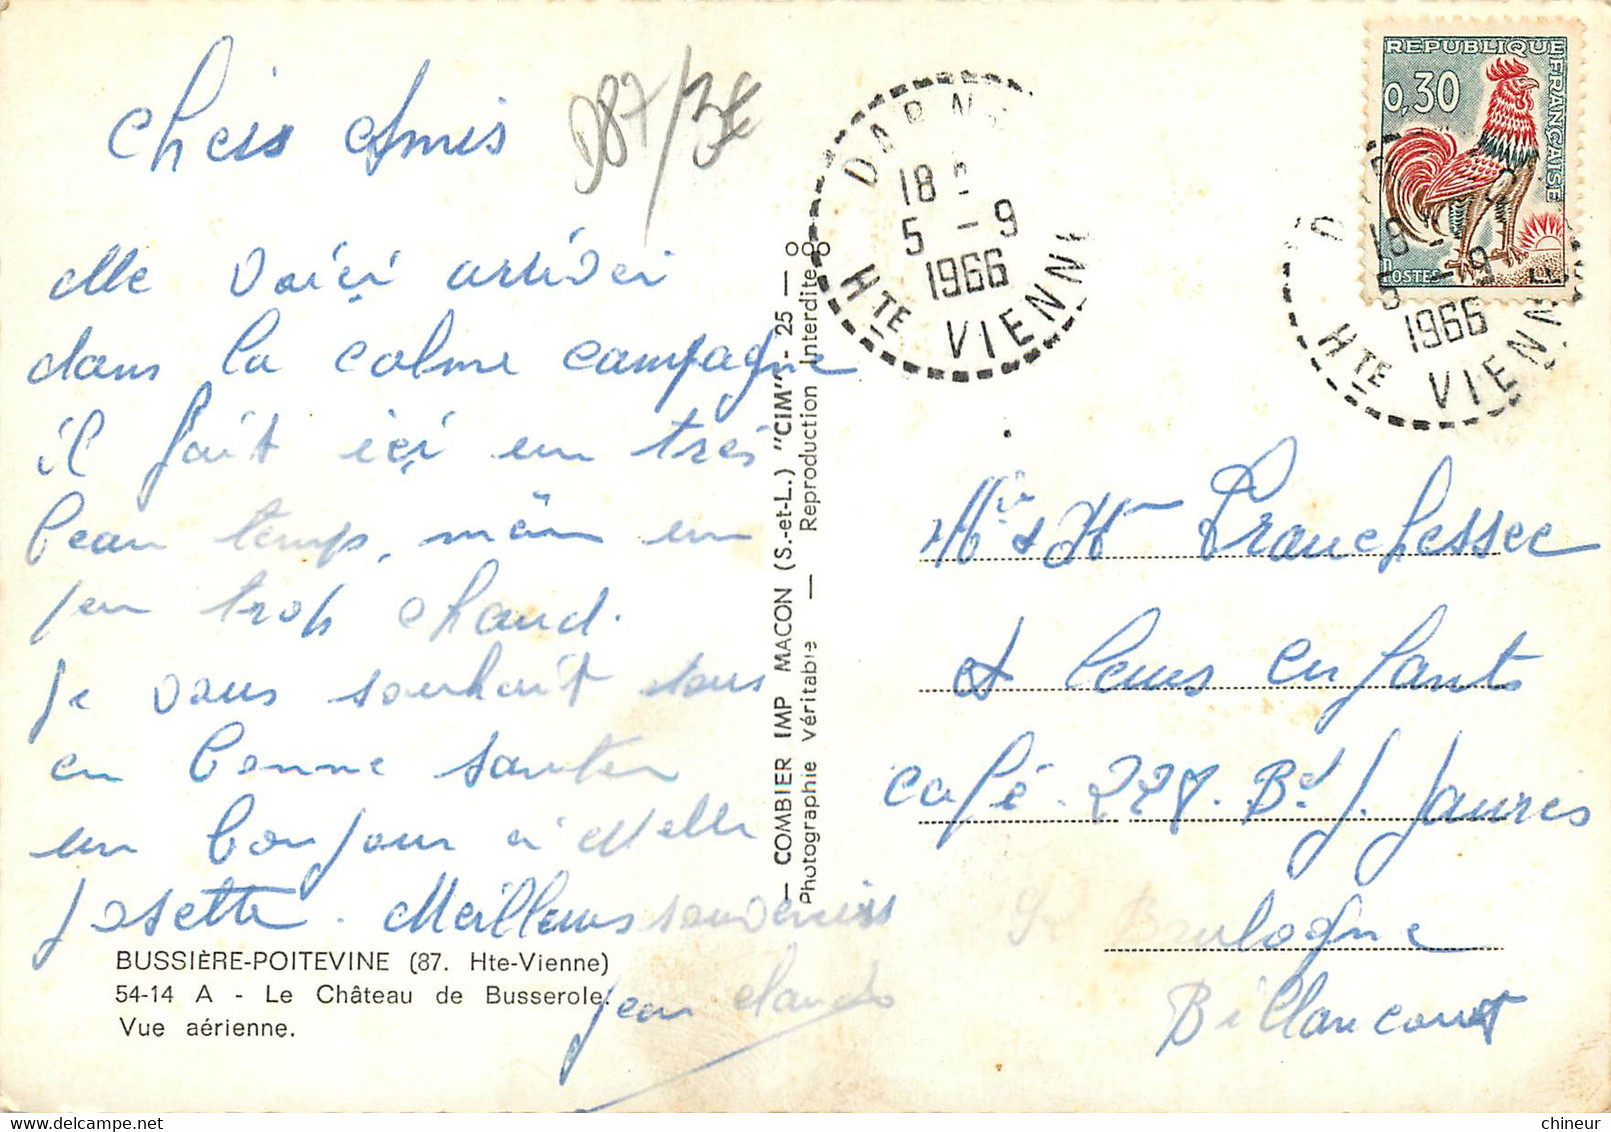 Chers Amis
D87/3€
Me voici arriver
dans la calme campagne
il fait ici un très
beau temps, même un
peu trop chaud.
je vous souhait tous
en bonne santer
un bonjour à Melle
Josette. Meilleurs souvenirs
Jean Claude
BUSSIÈRE-POITEVINE (87. Hte-Vienne)
54-14 A - Le Château de Busserole.
Vue aérienne.
— COMBIER IMP MACON (S.-et-L.) "CIM" - 25 —
Photographie Véritable — Reproduction Interdite
DARN
18
5 - 9
1966
HTE VIENN
REPUBLIQUE FRANÇAISE
0,30
POSTES
D
18
5 - 9
1966
HTE VIENN
Mr & Mme Franchessec
et leurs enfants
café. 228. Bd J. Jaures
Boulogne
Billancourt
chineur